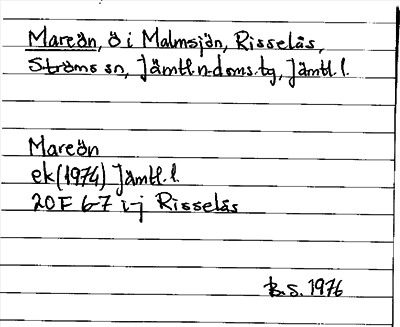 Mareön, ö i Malmsjön, Risselås,
Ströms sn, Jämtl. n. doms. tg, Jämtl. l.
Mareön
ek (1974) Jämtl. l.
20F 6-7 i-j Risselås
B.S. 1976